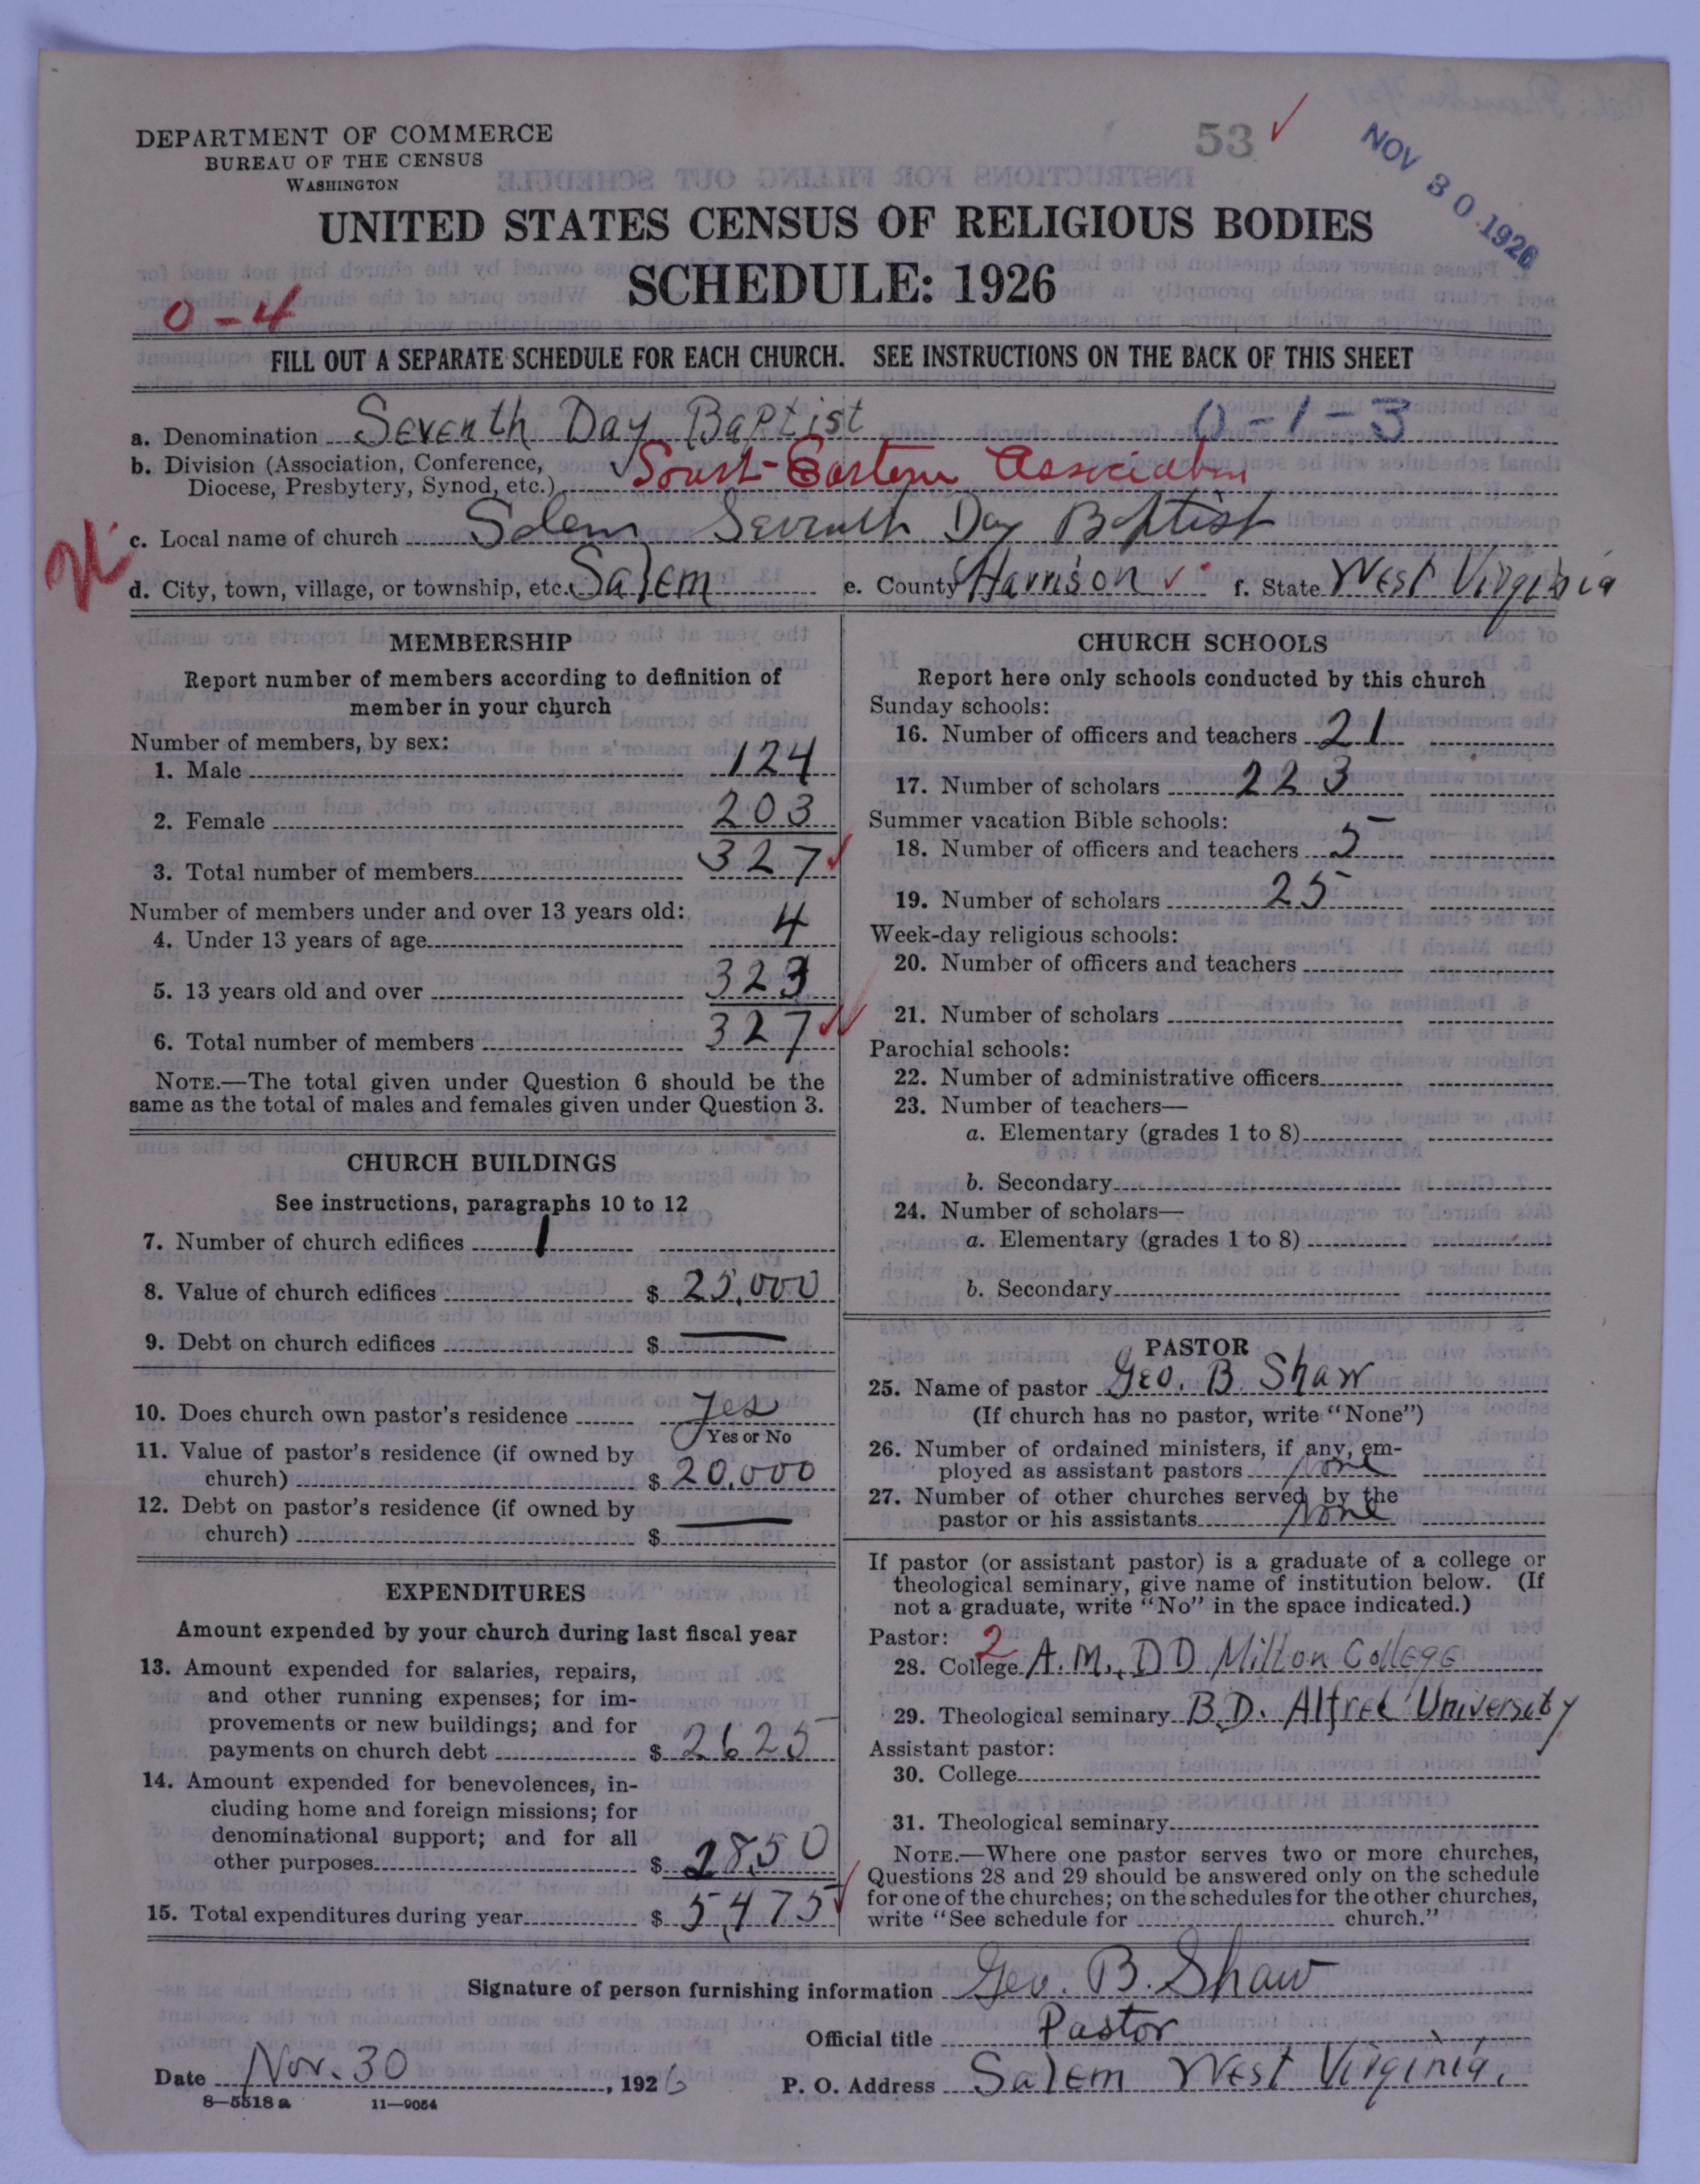 DEPARTMENT OF COMMERCE
BUREAU OF THE CENSUS
WASHINGTON
53 ✓
NOV 30 1926
UNITED STATES CENSUS OF RELIGIOUS BODIES
SCHEDULE: 1926
0-4
FILL OUT A SEPARATE SCHEDULE FOR EACH CHURCH. SEE INSTRUCTIONS ON THE BACK OF THIS SHEET
a. Denomination Seventh Day Baptist 0-1-3
b. Division (Association, Conference, Diocese, Presbytery, Synod, etc.) ✓ South-Eastern Association
c. Local name of church Salem Seventh Day Baptist
d. City, town, village, or township, etc. Salem e. County Harrison ✓ f. State West Virginia
MEMBERSHIP
Report number of members according to definition of
member in your church
Number of members, by sex:
1. Male 124
2. Female 203
3. Total number of members 327 ✓
Number of members under and over 13 years old:
4. Under 13 years of age 4
5. 13 years old and over 323
6. Total number of members 327 ✓✓
NOTE.—The total given under Question 6 should be the
same as the total of males and females given under Question 3.
CHURCH BUILDINGS
See instructions, paragraphs 10 to 12
7. Number of church edifices 1
8. Value of church edifices $ 25,000
9. Debt on church edifices $ —
10. Does church own pastor's residence Yes
Yes or No
11. Value of pastor's residence (if owned by
church) $ 20,000
12. Debt on pastor's residence (if owned by
church) $ —
EXPENDITURES
Amount expended by your church during last fiscal year
13. Amount expended for salaries, repairs,
and other running expenses; for im-
provements or new buildings; and for
payments on church debt $ 2625
14. Amount expended for benevolences, in-
cluding home and foreign missions; for
denominational support; and for all
other purposes $ 2850
15. Total expenditures during year $ 5,475 ✓
CHURCH SCHOOLS
Report here only schools conducted by this church
Sunday schools:
16. Number of officers and teachers 21
17. Number of scholars 223
Summer vacation Bible schools:
18. Number of officers and teachers 5
19. Number of scholars 25
Week-day religious schools:
20. Number of officers and teachers
21. Number of scholars
Parochial schools:
22. Number of administrative officers
23. Number of teachers—
a. Elementary (grades 1 to 8)
b. Secondary
24. Number of scholars—
a. Elementary (grades 1 to 8)
b. Secondary
PASTOR
25. Name of pastor Geo. B. Shaw
(If church has no pastor, write "None")
26. Number of ordained ministers, if any, em-
ployed as assistant pastors None
27. Number of other churches served by the
pastor or his assistants None
If pastor (or assistant pastor) is a graduate of a college or
theological seminary, give name of institution below. (If
not a graduate, write "No" in the space indicated.)
Pastor: 2
28. College A.M., D D Milton College
29. Theological seminary B.D. Alfred University
Assistant pastor:
30. College
31. Theological seminary
NOTE.—Where one pastor serves two or more churches,
Questions 28 and 29 should be answered only on the schedule
for one of the churches; on the schedules for the other churches,
write "See schedule for church."
Signature of person furnishing information Geo. B. Shaw
Official title Pastor
Date Nov. 30, 1926 P. O. Address Salem West Virginia.
8—5518 a 11—9054